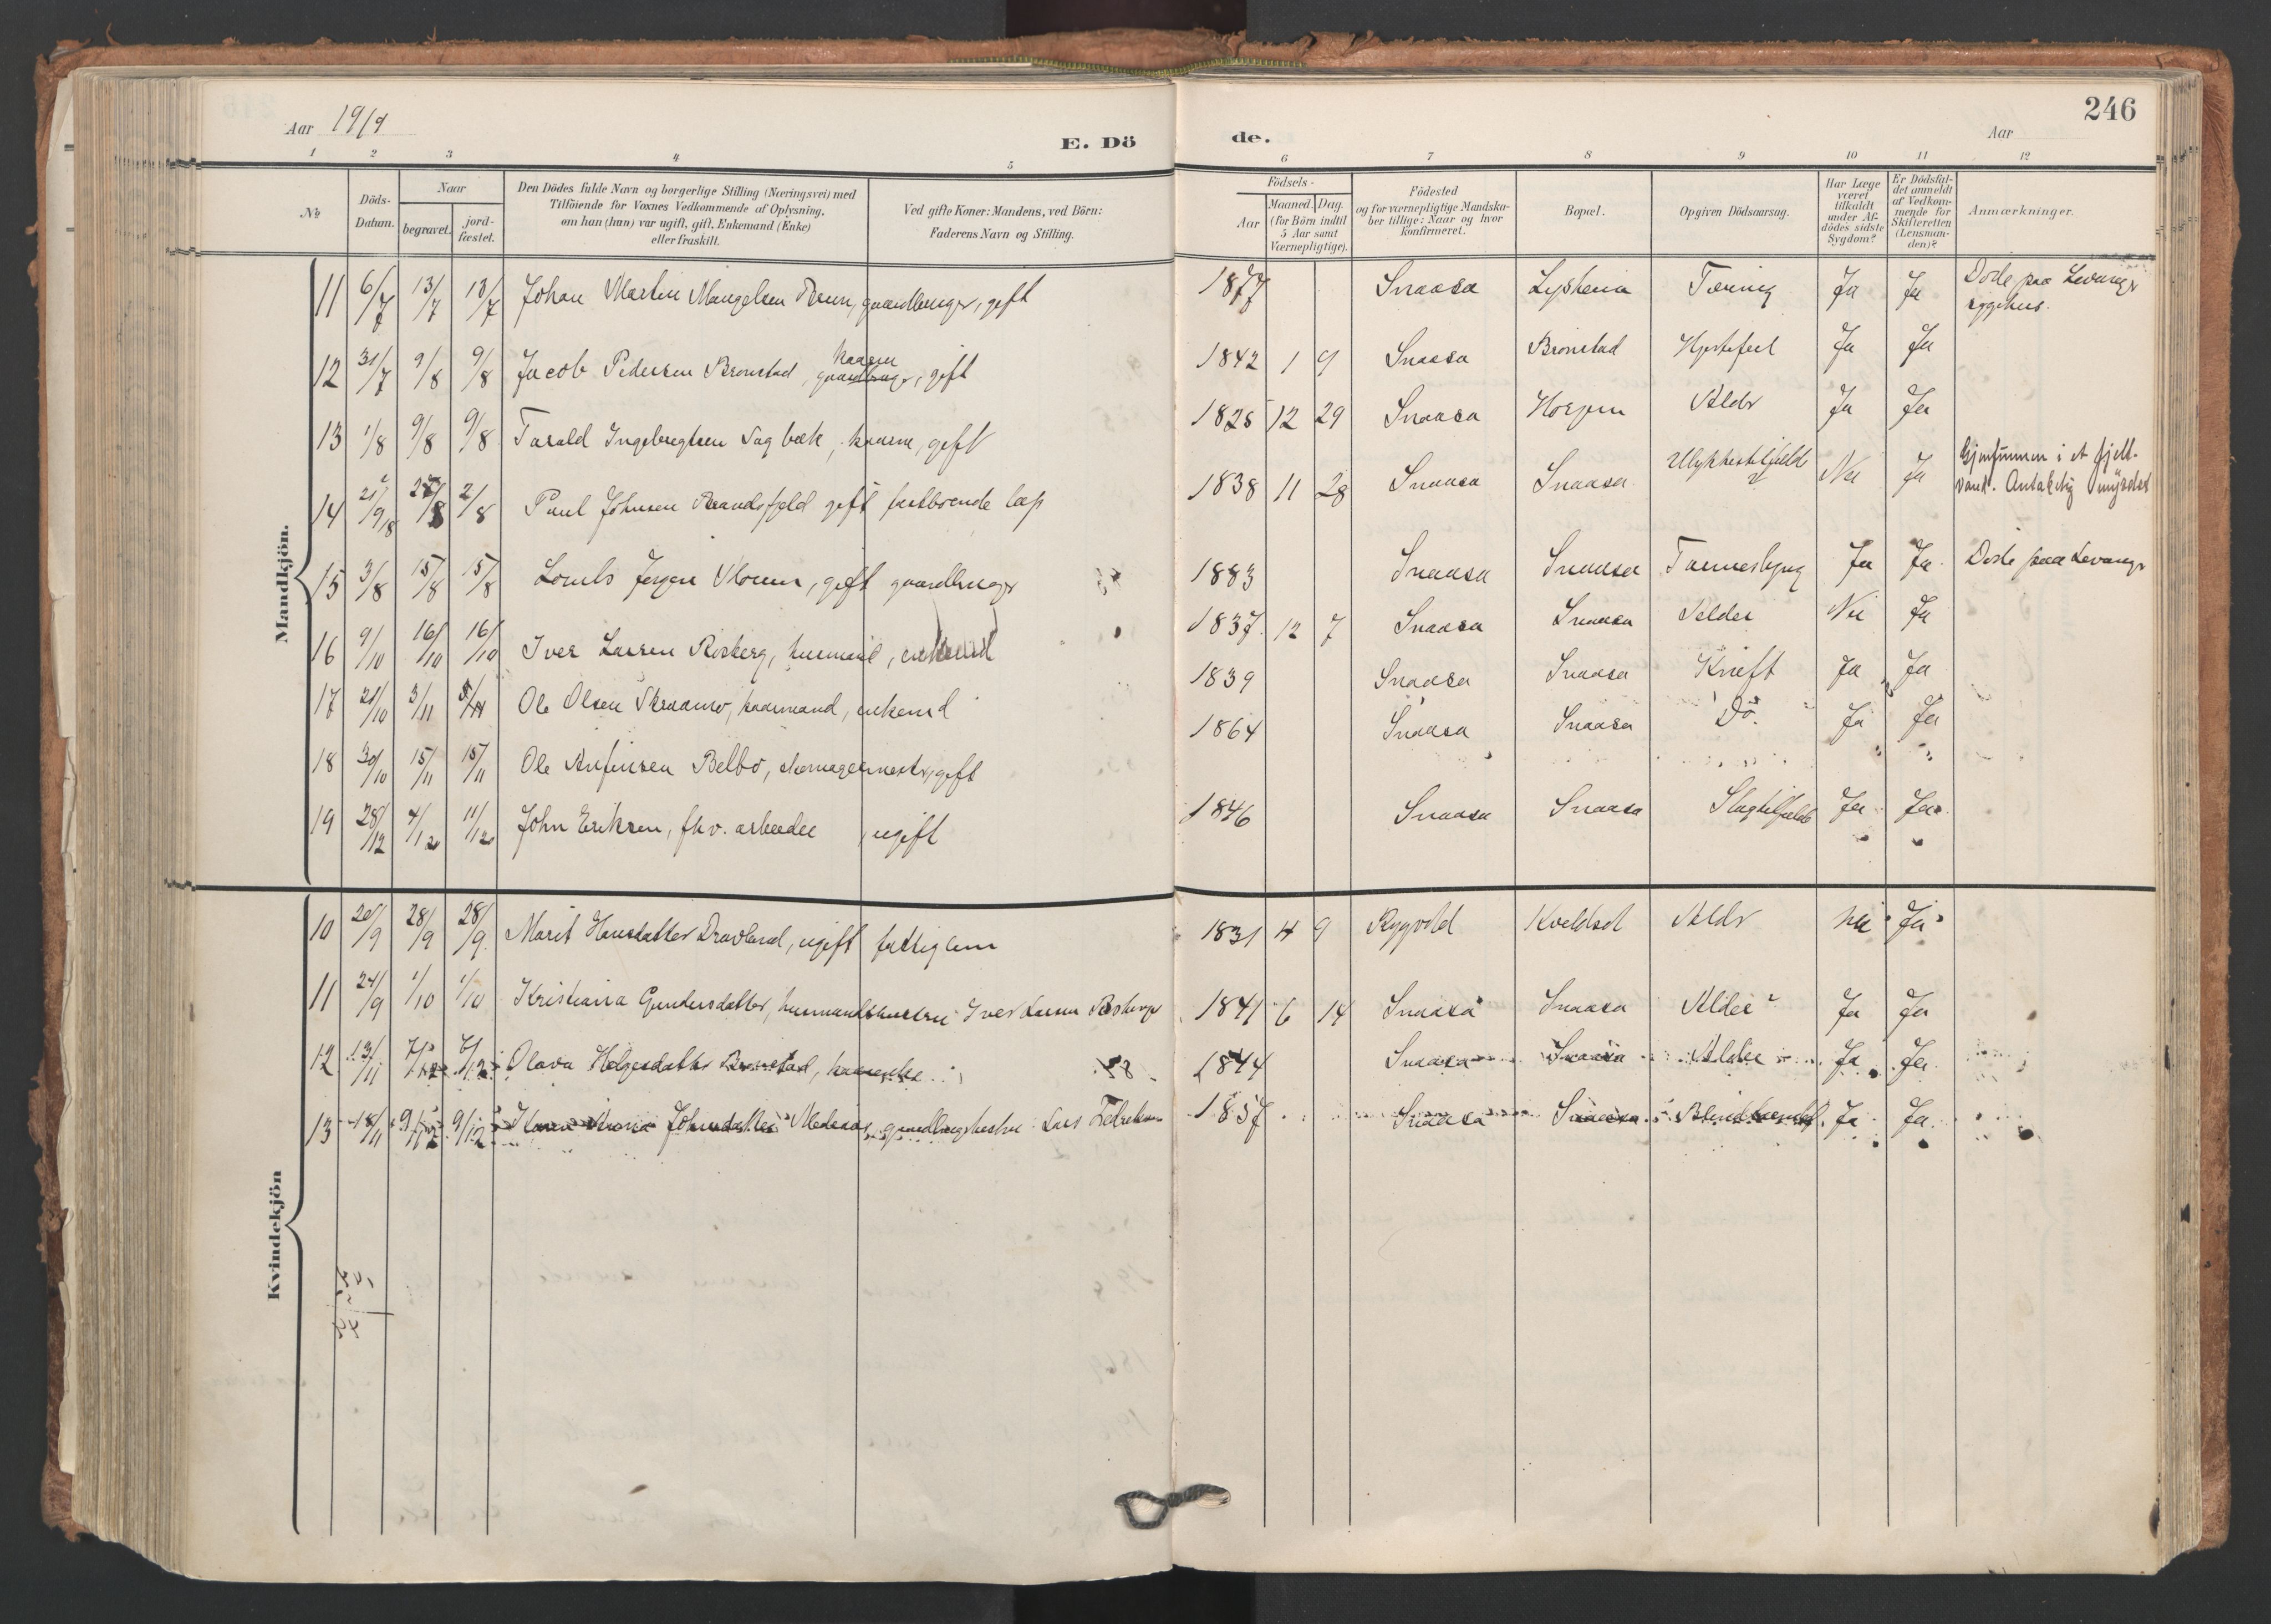 246
Aar 1919
E. Dö de.
Aar
1 2 3 4 5 6 7 8 9 10 11 12
№
Döds-Datum.
Naar
begravet.
jord-fæstet.
Den Dödes fulde Navn og borgerlige Stilling (Næringsvei) med
Tilföiende for Voxnes Vedkommende af Oplysning,
om han (hun) var ugift, gift, Enkemand (Enke)
eller fraskilt.
Ved gifte Koner: Mandens, ved Börn:
Faderens Navn og Stilling.
Födsels-
Aar
Maaned. Dag.
(for Börn indtil
5 Aar samt
Værnepligtige).
Födested
og for værnepligtige Mandska-
ber tillige: Naar og hvor
konfirmeret.
Bopæl.
Opgiven Dödsaarsag.
Har Læge
været
tilkaldt
under Af-
dödes sidste
Sygdom?
Er Dödsfal-
det anmeldt
af Vedkom-
mende for
Skifteretten
(Lensman-
den)?
Anmærkninger.
Mandkjön.
11 6/7 13/7 13/7 Johan Martin gaardbruger, gift 1877 Snaasa Tæring Ja Ja Döde paa Levanger sygehus.
12 31/7 9/8 9/8 Jacob Pedersen Bronstad, gaardbruger, gift 1842 1 9 Snaasa Bronstad Hjertefeil Ja Ja
13 1/8 9/8 9/8 Tarald Ingebregtsen Sagbæk, gift 1828 12 29 Snaasa Aldr Ja Ja
14 2/8 Paul Johnsen gift fastboende lap 1838 11 28 Snaasa Snaasa Ulykkestilfæld Nei Ja Gjenfunnen i et fjell-vand. Antakelig myrdet
15 3/8 15/8 15/8 Jørgen gift gaardbruger 1883 Snaasa Snaasa Ja Ja Döde paa Levanger
16 9/10 16/10 16/10 Iver Larsen Risberg, husmand, enkemd 1837 12 7 Snaasa Snaasa Nei Ja
17 21/10 3/11 Ole Olsen enkemd 1839 Snaasa Snaasa Kræft Ja Ja
18 30/10 15/11 15/11 Ole Anfinsen Belbo, gift 1864 Snaasa Snaasa Do. Ja Ja
19 28/12 4/1 20 11/1 20 John Eriksen, fhv. arbeider, ugift 1846 Snaasa Snaasa Slagtilfælde Ja Ja
Kvindekjön
10 20/9 28/9 28/9 Marit Hansdatter ugift fattiglem 1831 4 9 Kveldsol Aldr Nei Ja
11 24/9 1/10 1/10 Kristiana Gundersdatter, husmandshustru Iver Larsen Risberg 1841 6 14 Snaasa Snaasa Alder Ja Ja
12 13/11 Olava Helgesdatter Bronstad, 1844 Snaasa Snaasa Alder Ja Ja
13 18/11 9/12 9/12 Johnsdatter gaardbrugerhustru Lars 1857 Snaasa Snaasa Ja Ja